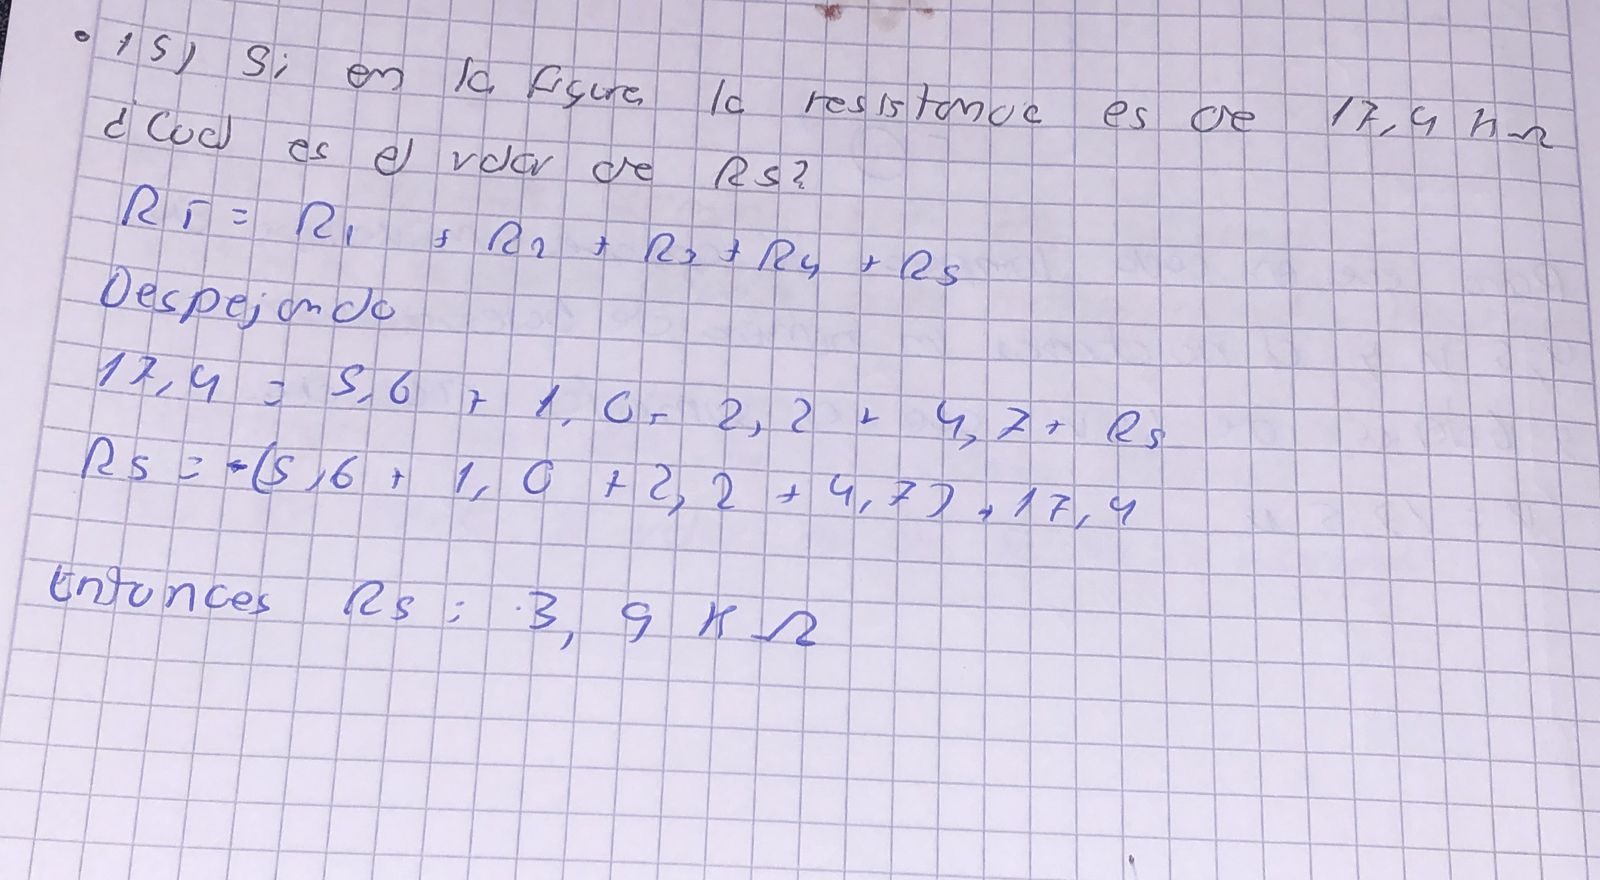 • 15) Si en la figura la resistencia es de 17,4 KΩ
¿Cual es el valor de R5?
RT = R1 + R2 + R3 + R4 + R5
Despejando
17,4 = 5,6 + 1,0 + 2,2 + 4,7 + R5
R5 = -(5,6 + 1,0 + 2,2 + 4,7) + 17,4
Entonces R5 = 3,9 KΩ